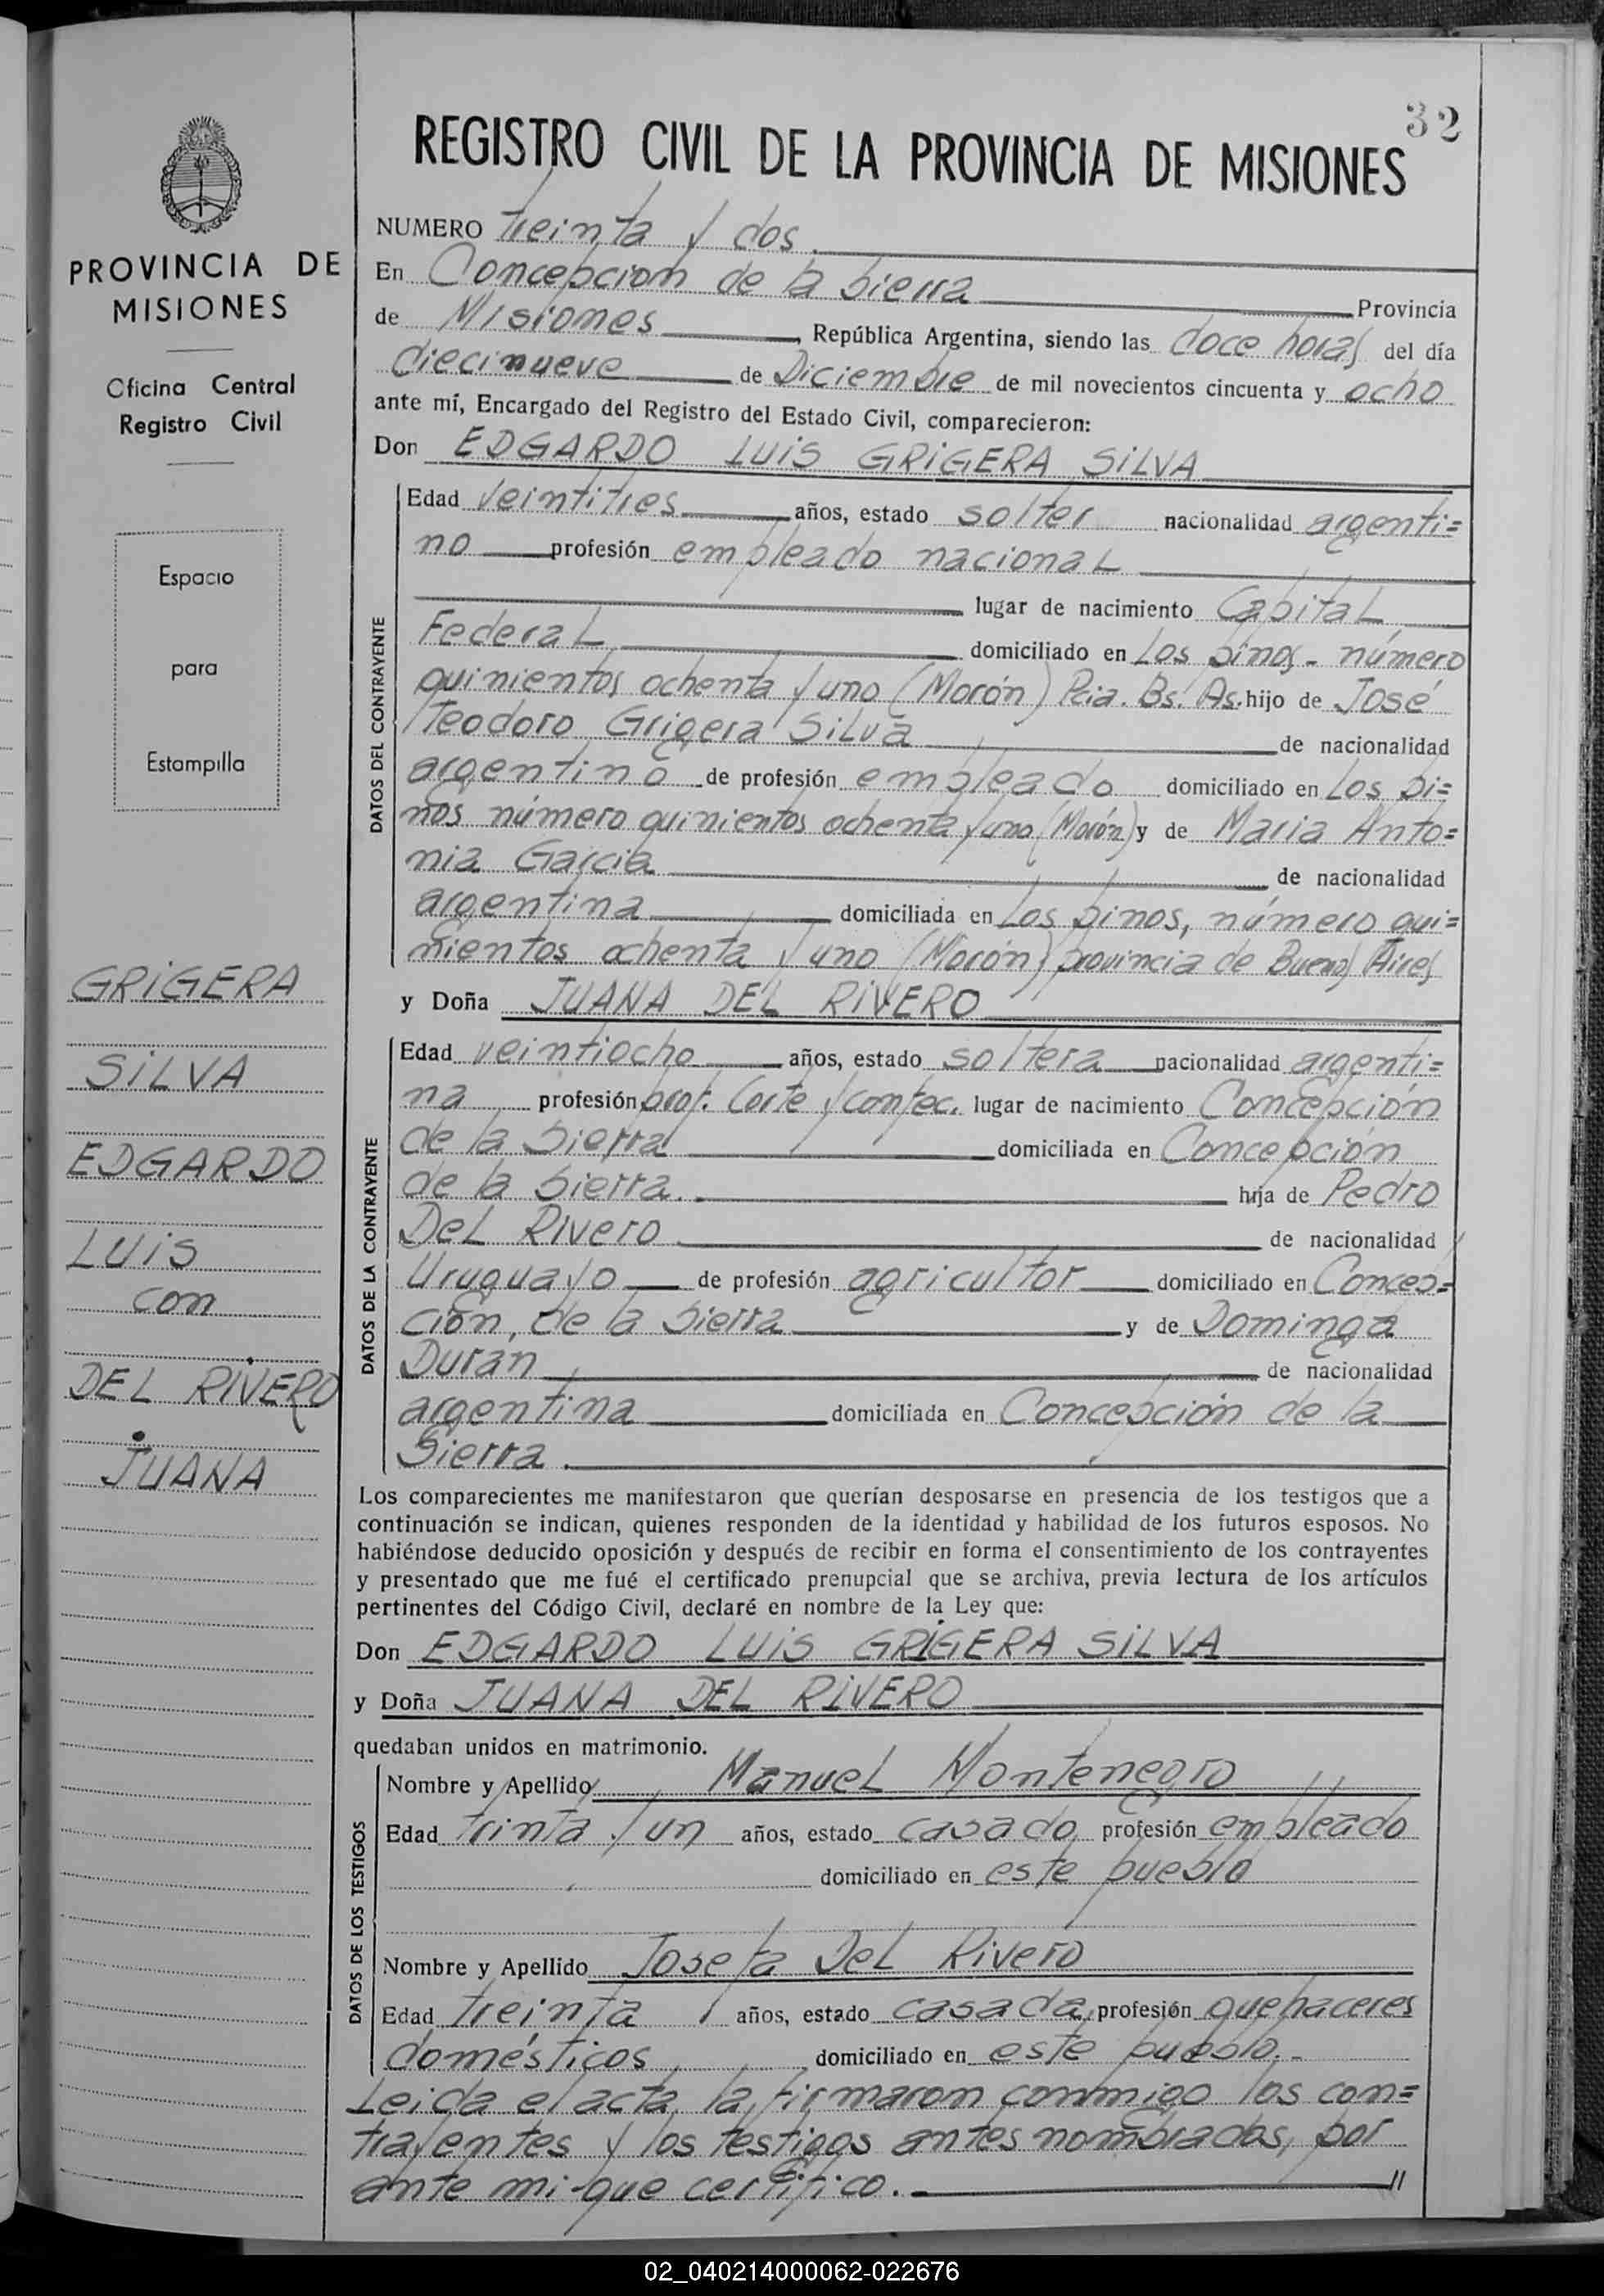 32
REGISTRO CIVIL DE LA PROVINCIA DE MISIONES
PROVINCIA DE
MISIONES
Oficina Central
Registro Civil
Espacio
para
Estampilla
GRIGERA
SILVA
EDGARDO
LUIS
con
DEL RIVERO
JUANA
NUMERO treinta y dos.
En Concepcion de la Sierra Provincia
de Misiones, República Argentina, siendo las doce horas del día
diecinueve de Diciembre de mil novecientos cincuenta y ocho
ante mí, Encargado del Registro del Estado Civil, comparecieron:
Don EDGARDO LUIS GRIGERA SILVA
DATOS DEL CONTRAYENTE
Edad veintitres años, estado solter nacionalidad argenti=
no profesión empleado nacional
lugar de nacimiento Capital
Federal domiciliado en Los pinos - número
quinientos ochenta y uno (Morón) Pcia. Bs. As. hijo de José
Teodoro Grigera Silva de nacionalidad
argentino de profesión empleado domiciliado en Los pi=
nos número quinientos ochenta y uno (Morón) y de Maria Anto=
nia Garcia de nacionalidad
argentina domiciliada en Los pinos, número qui=
nientos ochenta y uno (Morón) provincia de Buenos Aires
y Doña JUANA DEL RIVERO
DATOS DE LA CONTRAYENTE
Edad veintiocho años, estado soltera nacionalidad argenti=
na profesión prof. Corte y confec. lugar de nacimiento Concepción
de la Sierra domiciliada en Concepción
de la Sierra. hija de Pedro
Del Rivero de nacionalidad
Uruguayo de profesión agricultor domiciliado en Concep=
ción, de la Sierra y de Dominga
Duran de nacionalidad
argentina domiciliada en Concepción de la
Sierra.
Los comparecientes me manifestaron que querían desposarse en presencia de los testigos que a
continuación se indican, quienes responden de la identidad y habilidad de los futuros esposos. No
habiéndose deducido oposición y después de recibir en forma el consentimiento de los contrayentes
y presentado que me fué el certificado prenupcial que se archiva, previa lectura de los artículos
pertinentes del Código Civil, declaré en nombre de la Ley que:
Don EDGARDO LUIS GRIGERA SILVA
y Doña JUANA DEL RIVERO
quedaban unidos en matrimonio.
DATOS DE LOS TESTIGOS
Nombre y Apellido Manuel Montenegro
Edad trinta y un años, estado casado profesión empleado
domiciliado en este pueblo
Nombre y Apellido Josefa Del Rivero
Edad treinta años, estado casada, profesión quehaceres
domésticos domiciliado en este pueblo.-
Leida el acta, la firmaron conmigo los con=
trayentes y los testigos antes nombrados, por
ante mi que certifico. //
02_040214000062-022676